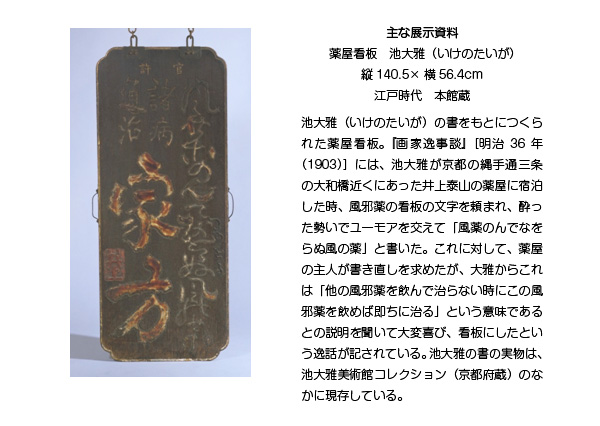 主な展示資料
薬屋看板　池大雅（いけのたいが）
縦 140.5× 横 56.4cm
江戸時代　本館蔵
池大雅（いけのたいが）の書をもとにつくら
れた薬屋看板。『画家逸事談』［明治 36 年
（1903）］には、池大雅が京都の縄手通三条
の大和橋近くにあった井上泰山の薬屋に宿泊
した時、風邪薬の看板の文字を頼まれ、酔っ
た勢いでユーモアを交えて「風薬のんでなを
らぬ風の薬」と書いた。これに対して、薬屋
の主人が書き直しを求めたが、大雅からこれ
は「他の風邪薬を飲んで治らない時にこの風
邪薬を飲めば即ちに治る」という意味である
との説明を聞いて大変喜び、看板にしたとい
う逸話が記されている。池大雅の書の実物は、
池大雅美術館コレクション（京都府蔵）のな
かに現存している。
官許
諸病
直治
家方